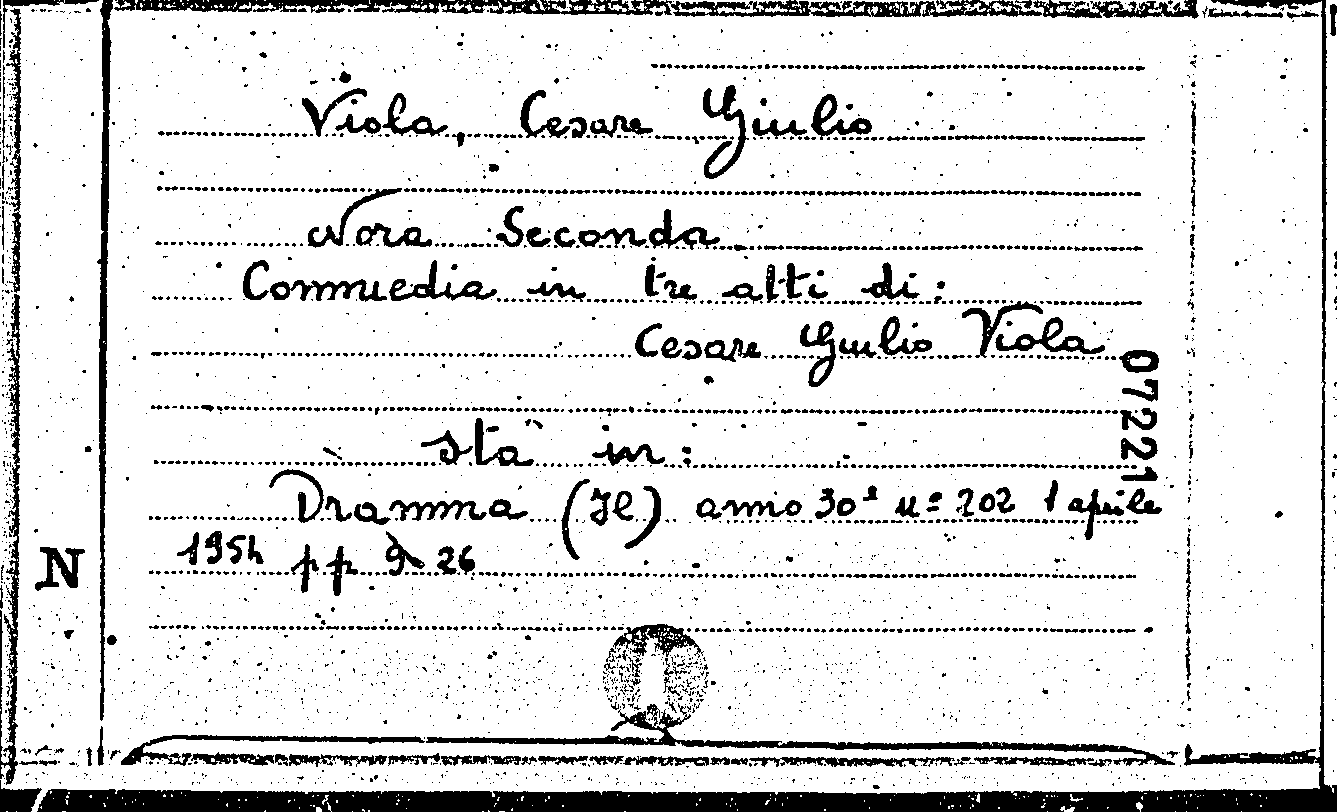 Viola, Cesare Giulio
Nora Seconda
Commedia in tre atti di:
Cesare Giulio Viola
07221
sta in:
Dramma (Il) anno 30º nº 202 1 aprile
1954 pp 9 26
N